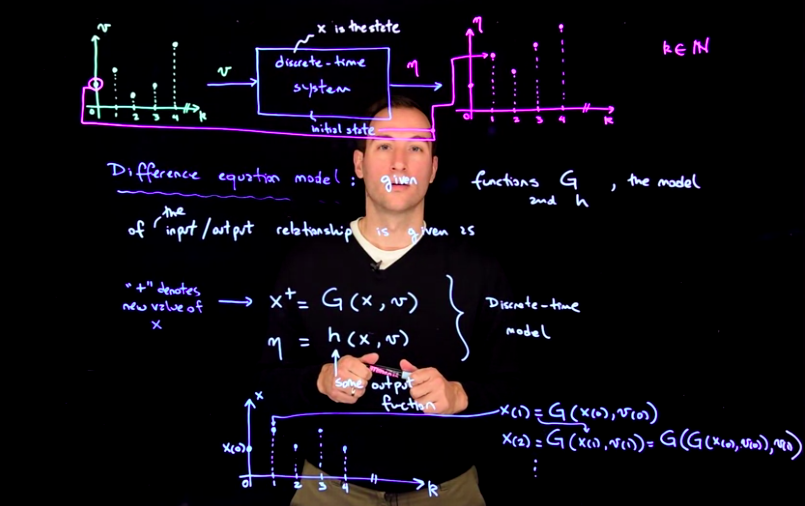 x is the state
v
η
k ∈ ℕ
v
discrete-time
system
η
0 1 2 3 4 k
0 1 2 3 4 k
initial state
Difference equation model: given functions G and h, the model
of the input/output relationship is given as
"+" denotes
new value of
x
x⁺ = G(x, v)
η = h(x, v)
Discrete-time
model
some output
function
x
x(0)
0 1 2 3 4 k
x(1) = G(x(0), v(0))
x(2) = G(x(1), v(1)) = G(G(x(0), v(0)), v(1)
⋮